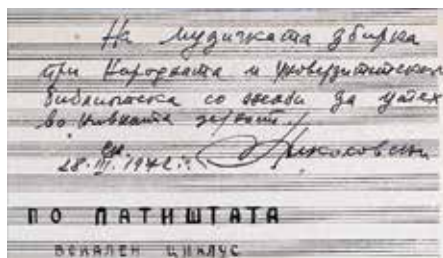 На музичката збирка
при Народната и Универзитетска
библиотека со желби за успех
во нивната
28. III. 1972 г. Николовски
ПО ПАТИШТАТА
ВОКАЛЕН ЦИКЛУС